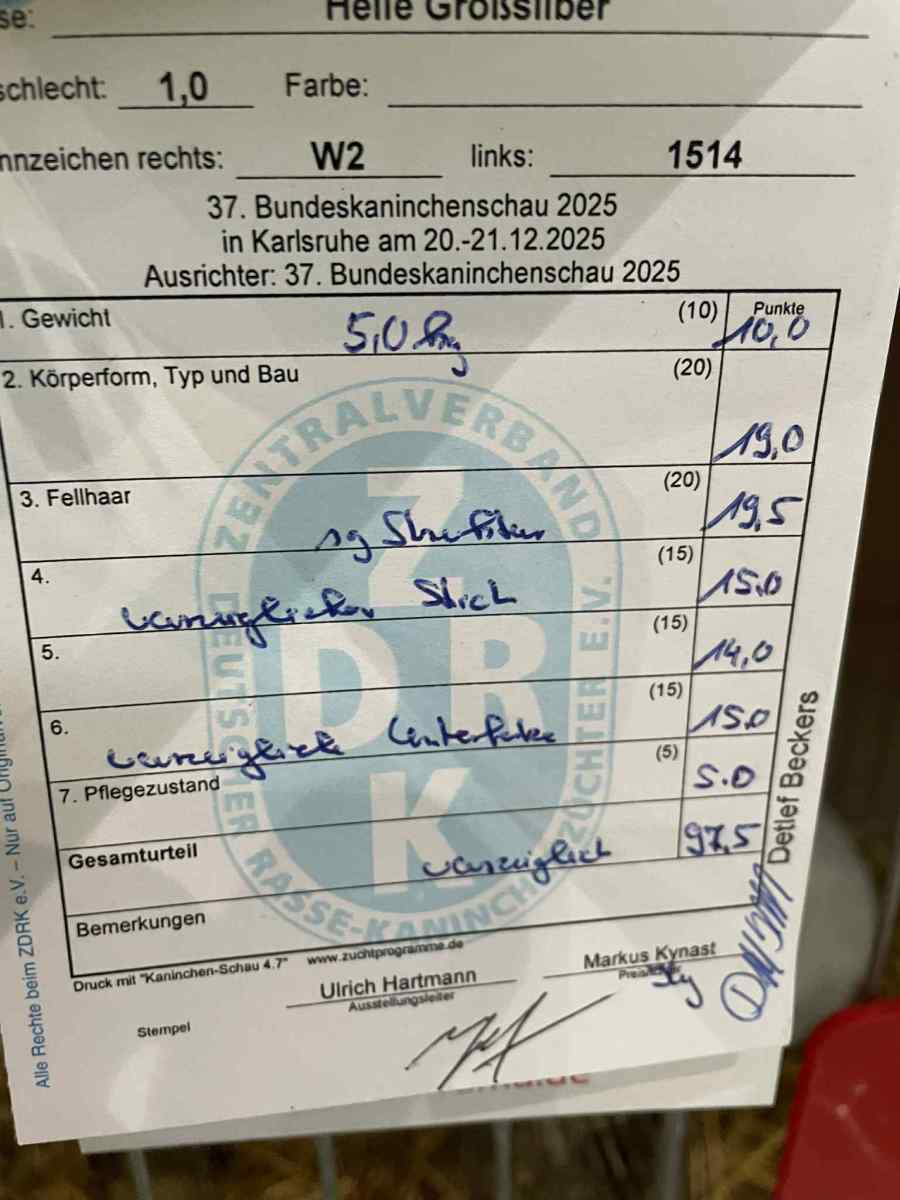 se: Helle Großsilber
schlecht: 1,0 Farbe:
nnzeichen rechts: W2 links: 1514
37. Bundeskaninchenschau 2025
in Karlsruhe am 20.-21.12.2025
Ausrichter: 37. Bundeskaninchenschau 2025
Punkte
1. Gewicht 5,0 kg (10) 10,0
2. Körperform, Typ und Bau (20) 19,0
3. Fellhaar sg Struktur (20) 19,5
4. vorzüglicher Stich (15) 15.0
5. (15) 14,0
6. vorzüglich Unterfarbe (15) 15.0
7. Pflegezustand (5) 5.0
Gesamturteil vorzüglich 97,5
Bemerkungen
Druck mit "Kaninchen-Schau 4.7" www.zuchtprogramme.de
Ulrich Hartmann
Ausstellungsleiter
Markus Kynast
Preisrichter
Stempel
Detlef Beckers
Alle Rechte beim ZDRK e.V. – Nur auf Original
ZENTRALVERBAND DEUTSCHER RASSE-KANINCHENZÜCHTER E.V.
ZDRK